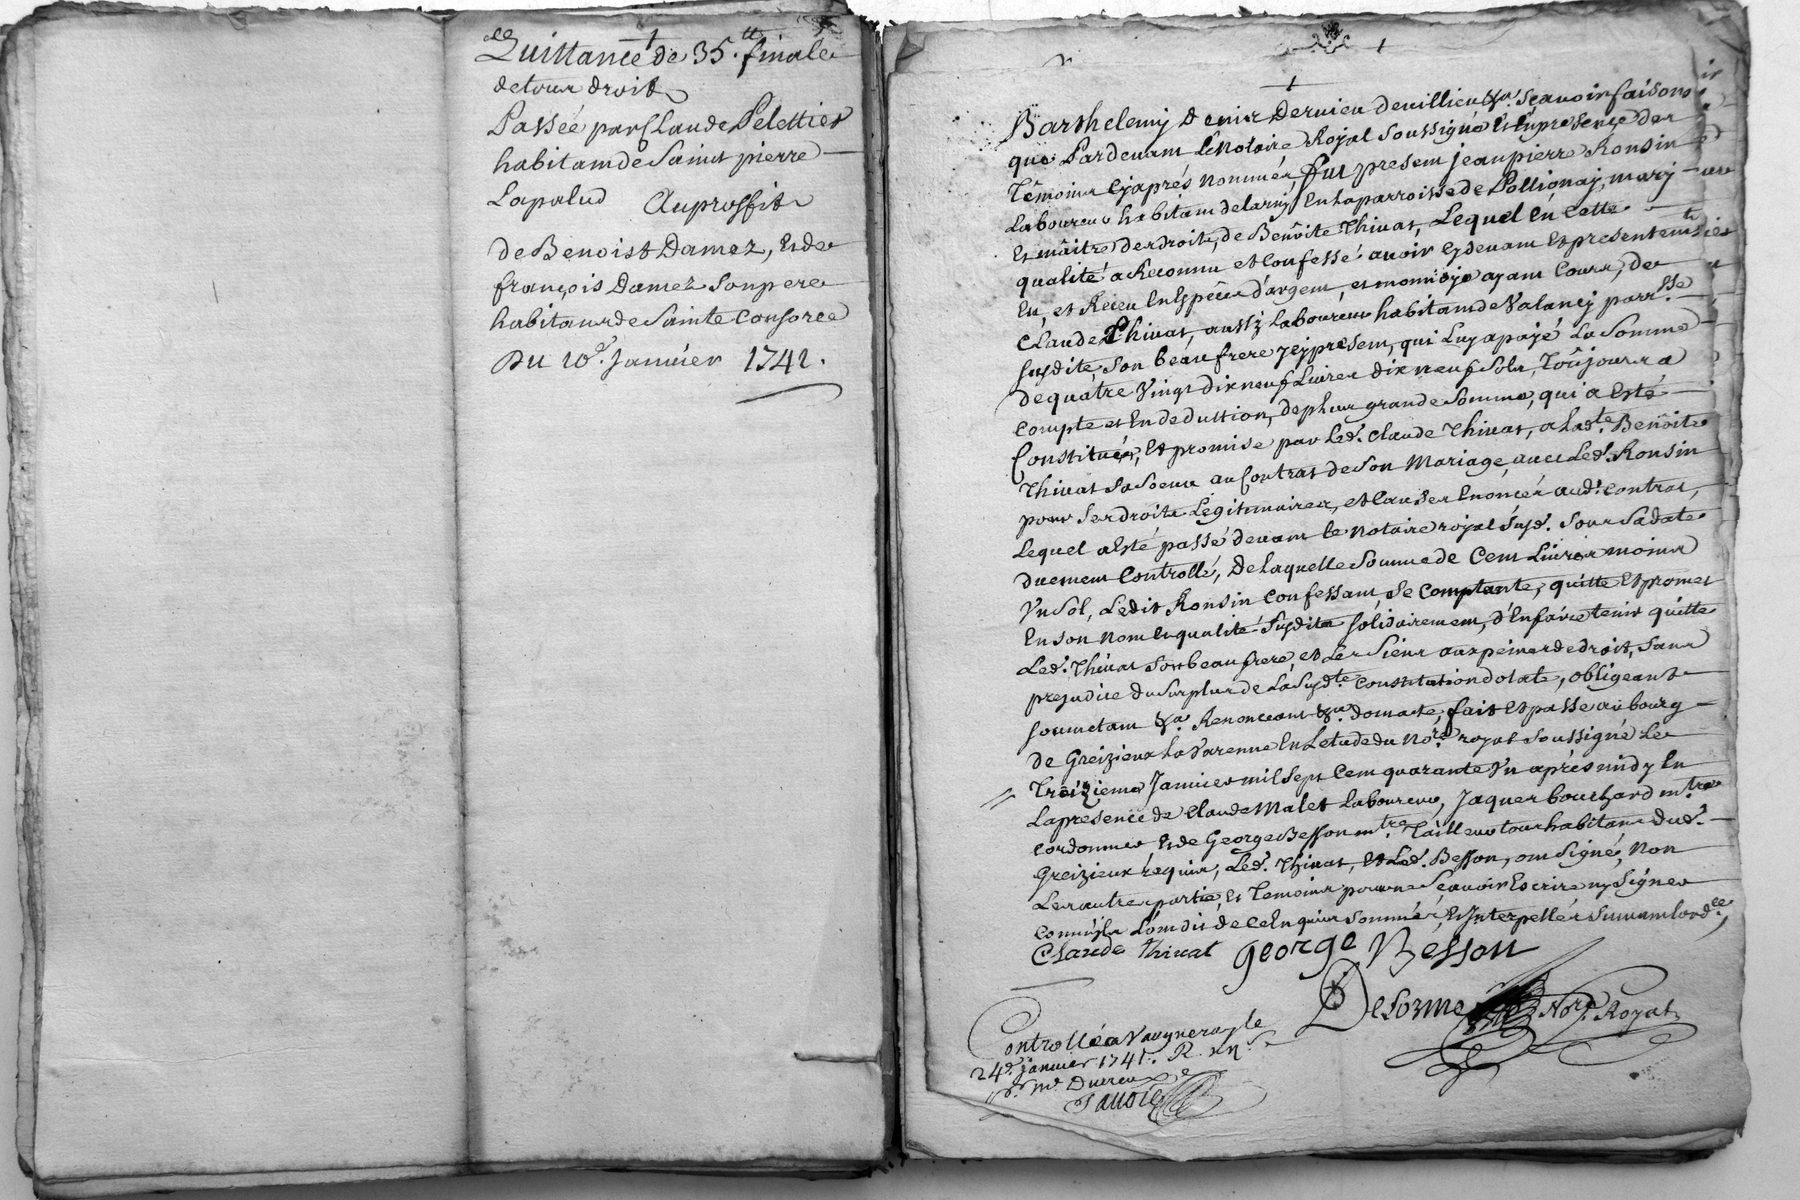 Quittance de 35.tt finale
de tous droits
Passée par Claude Pelettier
habitant de Saint pierre
Lapalud Au proffit
de Benoist Damez, Et de
françois Damez Son pere
habitans de Sainte Consorce
Du 10e. Janvier 1741.
Barthelemy Denis Dervieu devillieu &a. Sçavoir faisons
que Pardevant Le Notaire Royal Soussigné Et En presence des
Témoins Cy aprés nommés, fut present jean pierre Ronsin
Laboureur habitant de Larny En la parroisse de Pollionay, mary
Et maitre des droits, de Benôite Thivat, Lequel En Cette
qualité a Reconnu et Confessé avoir Cy devant Et presentemt.
Eu, et Receu En Espèces d'argent, et monnoye ayant Cours, de
Claude Thivat, aussy Laboureur habitant de Valancy parr.sse
susdite, Son beau frere jcy present, qui Luy a payé La Somme
de quatre Vingt dix neuf Livres dix neuf Sols, Toûjours a
Compte et En deduction, de plus grande Somme, qui a Esté
Constituée, Et promise par Led. Claude Thivat, a Lad.te Benôite
Thivat Sa Soeur au Contrat de Son Mariage, avec Led. Ronsin
pour Ses droits Legitimaires, et Causes Enoncés aud. Contrat,
Lequel a Esté passé devant le Notaire royal Susd. Sous Sa date
duement Controllé, De Laquelle Somme de Cent Livres moins
Vn Sol, Ledit Ronsin Confessant, Se Comptante, quitte Et promet
En son nom Et qualité Susdite solidairement, d'En faire tenir quitte
Led. Thivat Son beau frere, et Les Siens aux peines de droit, Sans
prejudice du Surplus de La Susd.te Constitution dotale, obligeant
soumetant &a. Renonceant &a. dont acte, fait Et passé au bourg
de Greizieu La Varenne En Letude du No.re royal Soussigné Le
Treizieme Janvier mil Sept Cent quarante Vn après midy En
La presence de Claude Malet Laboureur, Jaques bouchard m.tre
Cordonnier Et de George Besson m.tre Tailleur tous habitans dud.
Greizieux requis, Led. Thivat, Et Led. Besson, ont Signé, Non
Les autres partie, Et Temoins pour ne Scavoir Escrire ny Signer
Comme ils L'ont dit de Ce Enquis Sommés, Et Interpellés Suivant Lord.ce,
Claude Thivat George Besson
Desorme No.re Royal
Controllé a Vaugneray le
24e. janvier 1741. R.
Savoie